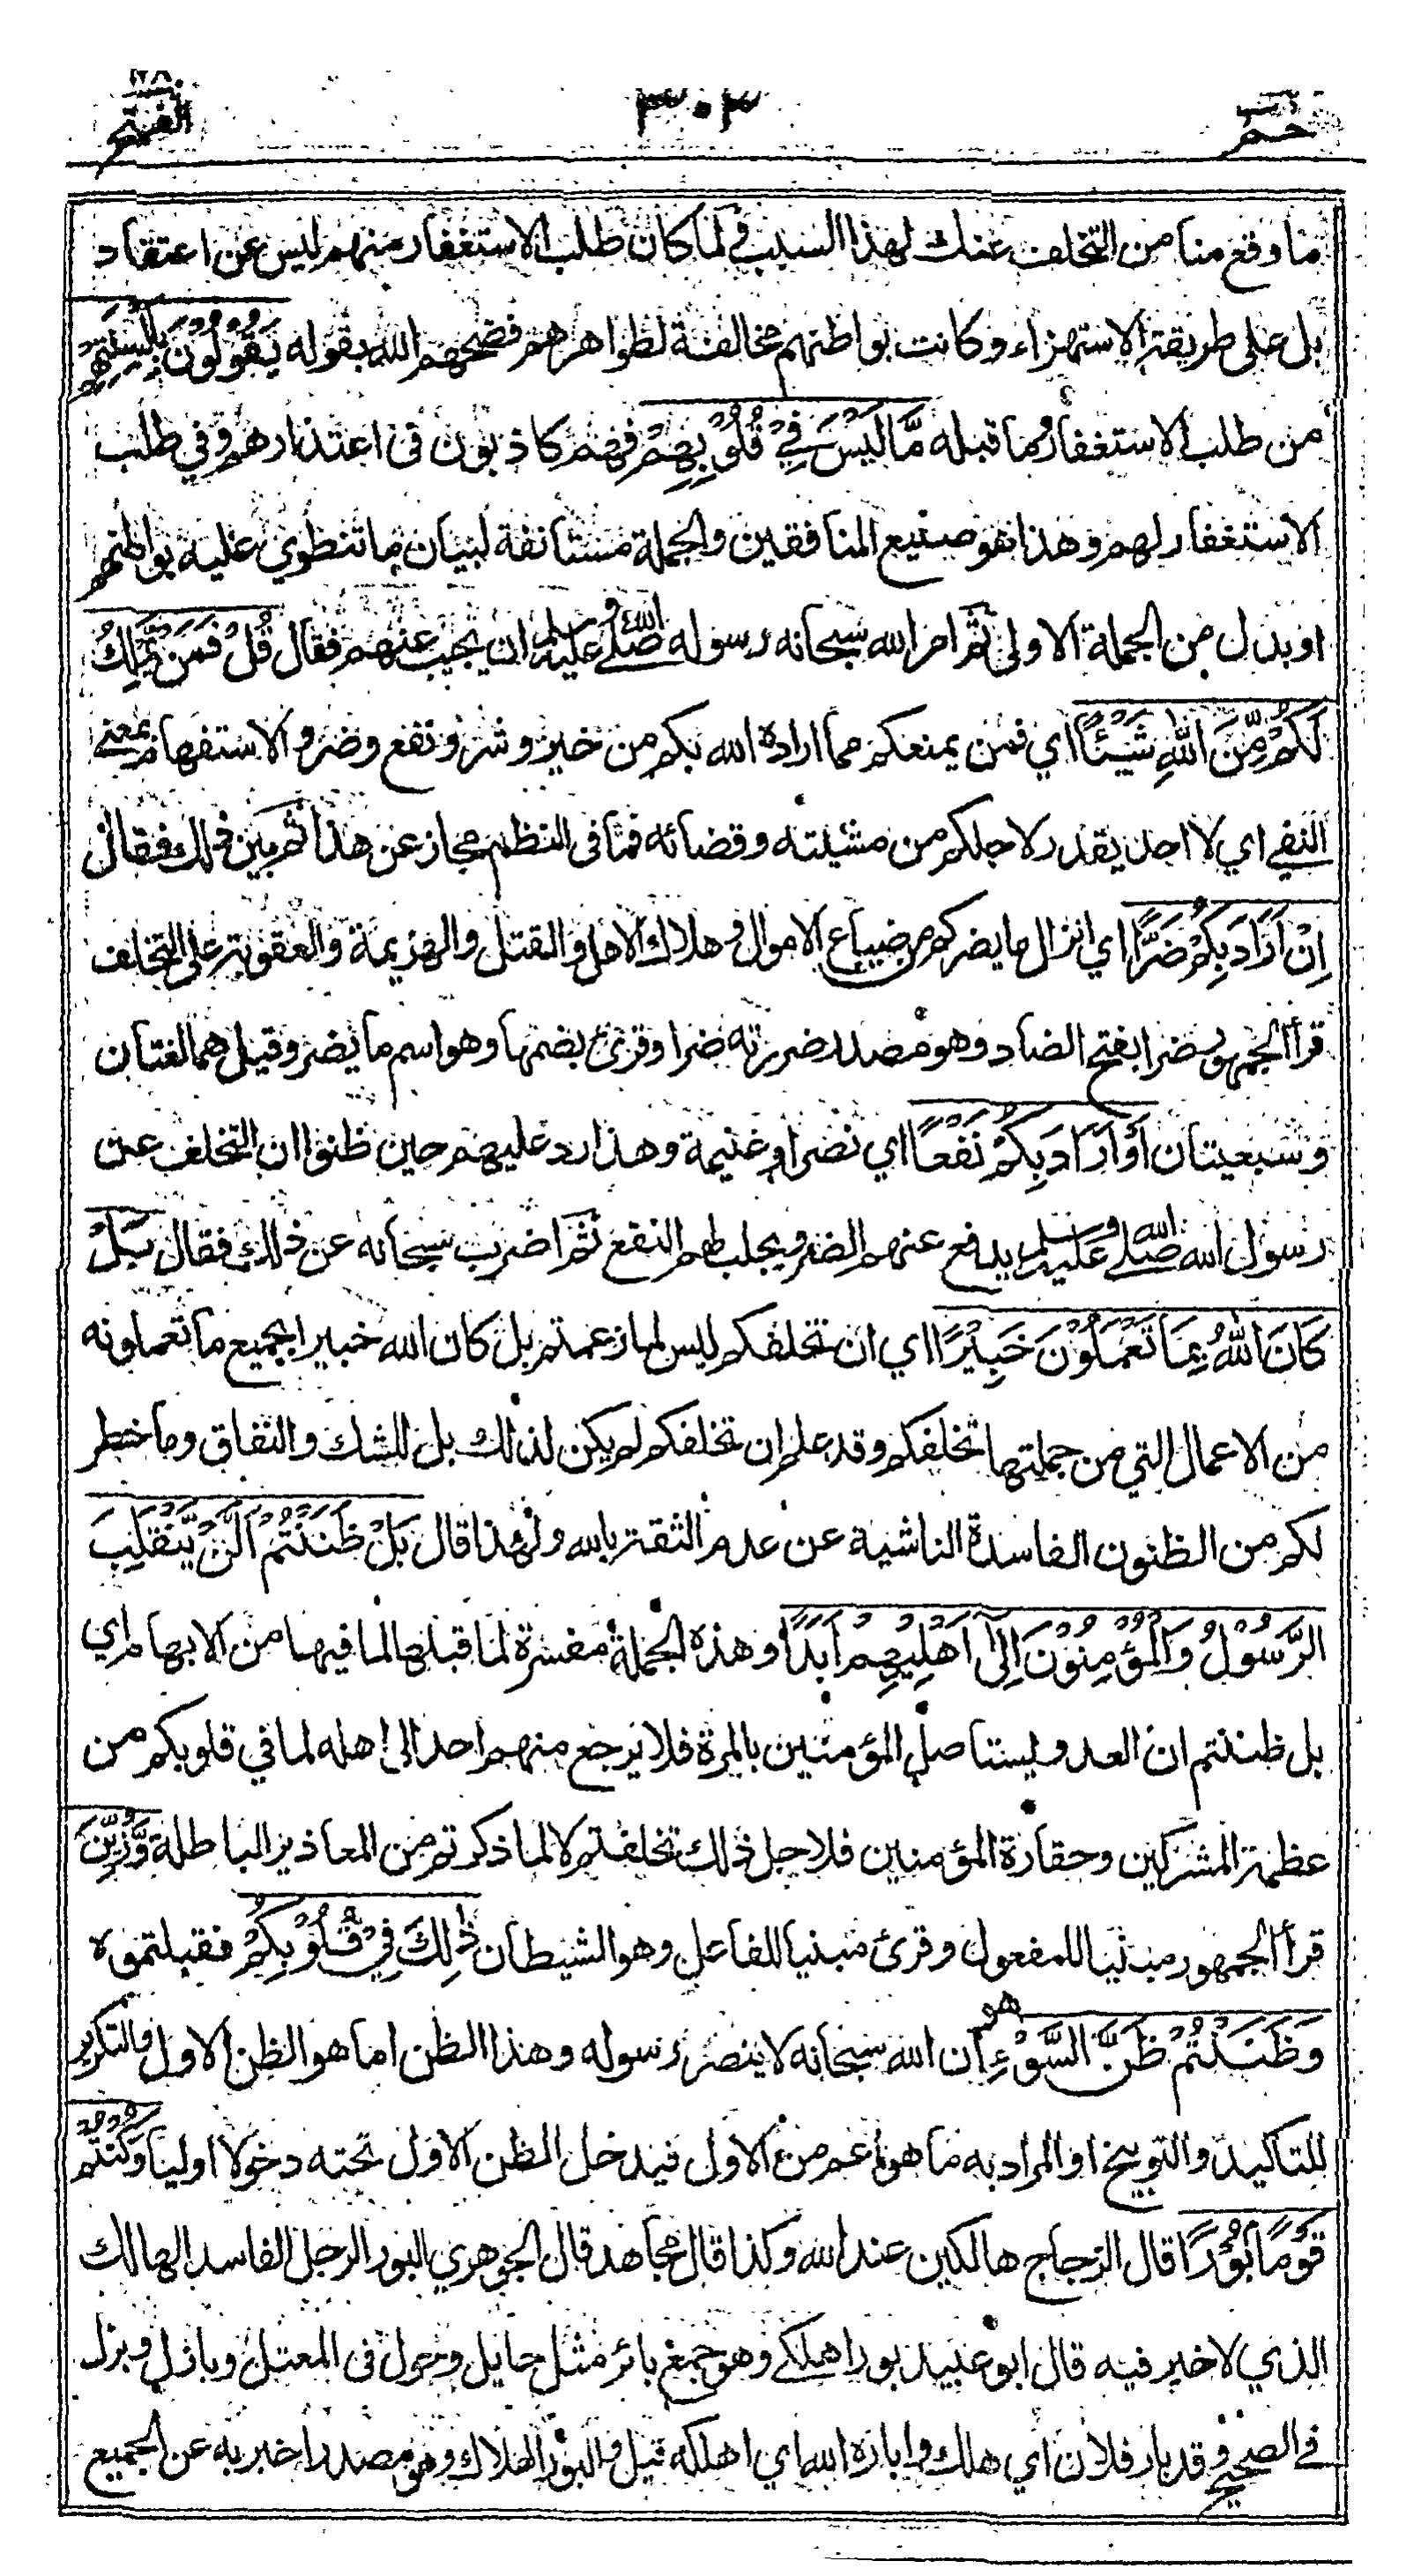 حم
٣٠٣
الفتح
ما وقع منا من التخلف عنك لهذا السبب ولما كان طلب الاستغفار منهم ليس عن اعتقاد
بل على طريقة الاستهزاء وكانت بواطنهم مخالفة لظواهرهم فضحهم الله بقوله يَقُوْلُوْنَ بِاَلْسِنَتِهِمْ
من طلب الاستغفار وما قبله مَّا لَيْسَ فِيْ قُلُوْبِهِمْ فهم كاذبون في اعتذارهم وفي طلب
الاستغفار لهم وهذا هو صنيع المنافقين والجملة مستانفة لبيان ما تنطوي عليه بواطنهم
او بدل من الجملة الاولى ثم امر الله سبحانه رسوله صلى الله عليه وسلم ان يجيب عنهم فقال قُلْ فَمَنْ يَّمْلِكُ
لَكُمْ مِّنَ اللّٰهِ شَيْئًا اي فمن يمنعكم مما اراده الله بكم من خير وشر ونفع وضر والاستفهام بمعنى
النفي اي لا احد يقدر لاجلكم من مشيئته وقضائه فما في النظم مجاز عن هذا ثم بين ذلك فقال
اِنْ اَرَادَ بِكُمْ ضَرًّا اي انزال ما يضركم من ضياع الاموال وهلاك الاهل والقتل والهزيمة والعقوبة على التخلف
قرأ الجمهور ضرا بفتح الضاد وهو مصدر ضررته ضرا وقرئ بضمها وهو اسم ما يضر وقيل هما لغتان
وسبعيتان اَوْ اَرَادَ بِكُمْ نَفْعًا اي نصرا وغنيمة وهذا رد عليهم حين ظنوا ان التخلف عن
رسول الله صلى الله عليه وسلم يدفع عنهم الضر ويجلب لهم النفع ثم اضرب سبحانه عن ذلك فقال بَلْ
كَانَ اللّٰهُ بِمَا تَعْمَلُوْنَ خَبِيْرًا اي ان تخلفكم ليس لما زعمتم بل كان الله خبيرا بجميع ما تعملونه
من الاعمال التي من جملتها تخلفكم وقد علم ان تخلفكم لم يكن لذلك بل للشك والنفاق وما خطر
لكم من الظنون الفاسدة الناشية عن عدم الثقة بالله ولهذا قال بَلْ ظَنَنْتُمْ اَنْ لَّنْ يَّنْقَلِبَ
الرَّسُوْلُ وَالْمُؤْمِنُوْنَ اِلٰٓى اَهْلِيْهِمْ اَبَدًا وهذه الجملة مفسرة لما قبلها لما فيها من الابهام اي
بل ظننتم ان العدو ليستاصل المؤمنين بالمرة فلا يرجع منهم احد الى اهله لما في قلوبكم من
عظمة المشركين وحقارة المؤمنين فلاجل ذلك تخلفتم لا لما ذكرتم من المعاذير الباطلة وَّزُيِّنَ
قرأ الجمهور مبنيا للمفعول وقرئ مبنيا للفاعل وهو الشيطان ذٰلِكَ فِيْ قُلُوْبِكُمْ فقبلتموه
وَظَنَنْتُمْ ظَنَّ السَّوْءِ هو ان الله سبحانه لا ينصر رسوله وهذا الظن اما هو الظن الاول والتكرير
للتاكيد والتوبيخ او المراد به ما هو اعم من الاول فيدخل الظن الاول تحته دخولا اوليا وَكُنْتُمْ
قَوْمًا بُوْرًا قال الزجاج هالكين عند الله وكذا قال مجاهد قال الجوهري البور الرجل الفاسد الهالك
الذي لا خير فيه قال ابو عبيد بورا هلكى وهو جمع بائر مثل حايل وحول في المعتل وبازل وبزل
في الصحيح وقد بار فلان اي هلك واباره الله اي اهلكه قيل والبور الهلاك وهو مصدر اخبر به عن الجميع